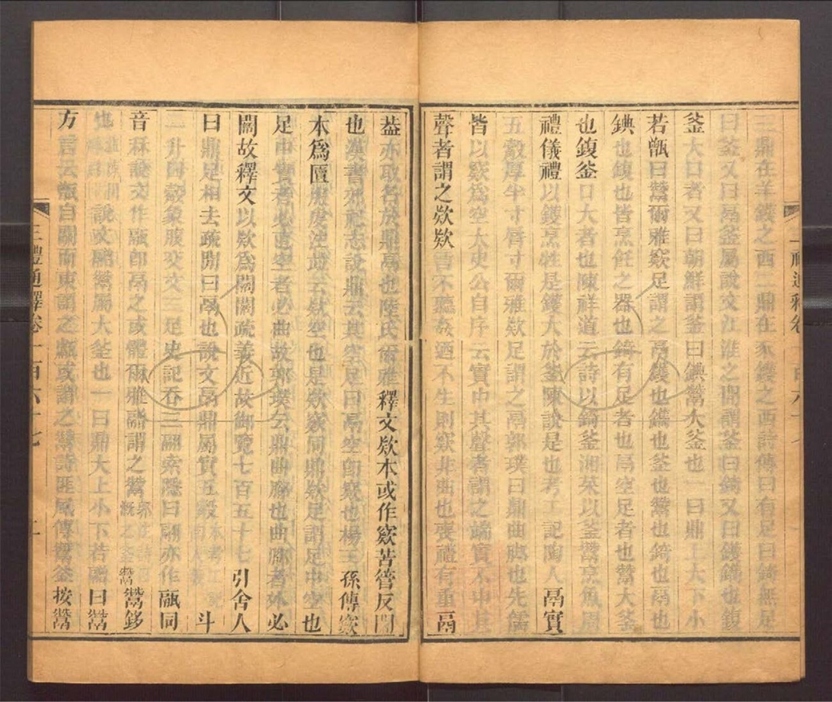 一鼎在羊鑊之西一鼎在豕鑊之西詩傳曰有足曰錡無足
曰釜又曰鬲釜屬說文江淮之閒謂釜曰錡又曰鑊鑴也鍑
釜大口者又曰朝鮮謂釜曰錪鬵大釜也一曰鼎上大下小
若甑曰鬵爾雅款足謂之鬲鑊也鑴也釜也鬵也錡也鬲也
錪也鍑也皆烹飪之器也錡有足者也鬲空足者也鬵大釜
也鍑釜口大者也陳祥道云詩以錡釜湘菜以釜鬵烹魚周
禮儀禮以鑊烹牲是鑊大於釜陳說是也考工記陶人鬲實
五觳厚半寸脣寸爾雅款足謂之鬲郭璞曰鼎曲腳也先儒
皆以款爲空太史公自序云實中其聲者謂之端實不中其
聲者謂之款款言不聽姦迺不生則款非曲也喪禮有重鬲
蓋亦取名於鼎鬲也陸氏爾雅釋文款本或作窾苦管反閒
也漢書郊祀志說鼎云其空足曰鬲空卽窾也楊王孫傳窾
木爲匱服虔注云款空也是款窾同鼎款足謂足中空也
足中實者必直空者必曲故郭璞云鼎曲腳也曲腳者不必
闊故釋文以款爲闊闊疏義近故御覽七百五十七引舍人
曰鼎足相去疏閒曰鬲也說文鬲鼎屬實五觳斗
二升曰觳象腹交文三足史記吞三翮索隱曰翮亦作䰛同
音麻說文作䰛卽鬲之或體爾雅䰝謂之鬵鬵鬵鉹
也說文鬷鬵屬大釜也一曰鼎大上小下若甑曰鬵
方言云甑自關而東謂之甗或謂之鬵詩匪風傳鬵釜按鬵
三禮通釋卷一百六十七